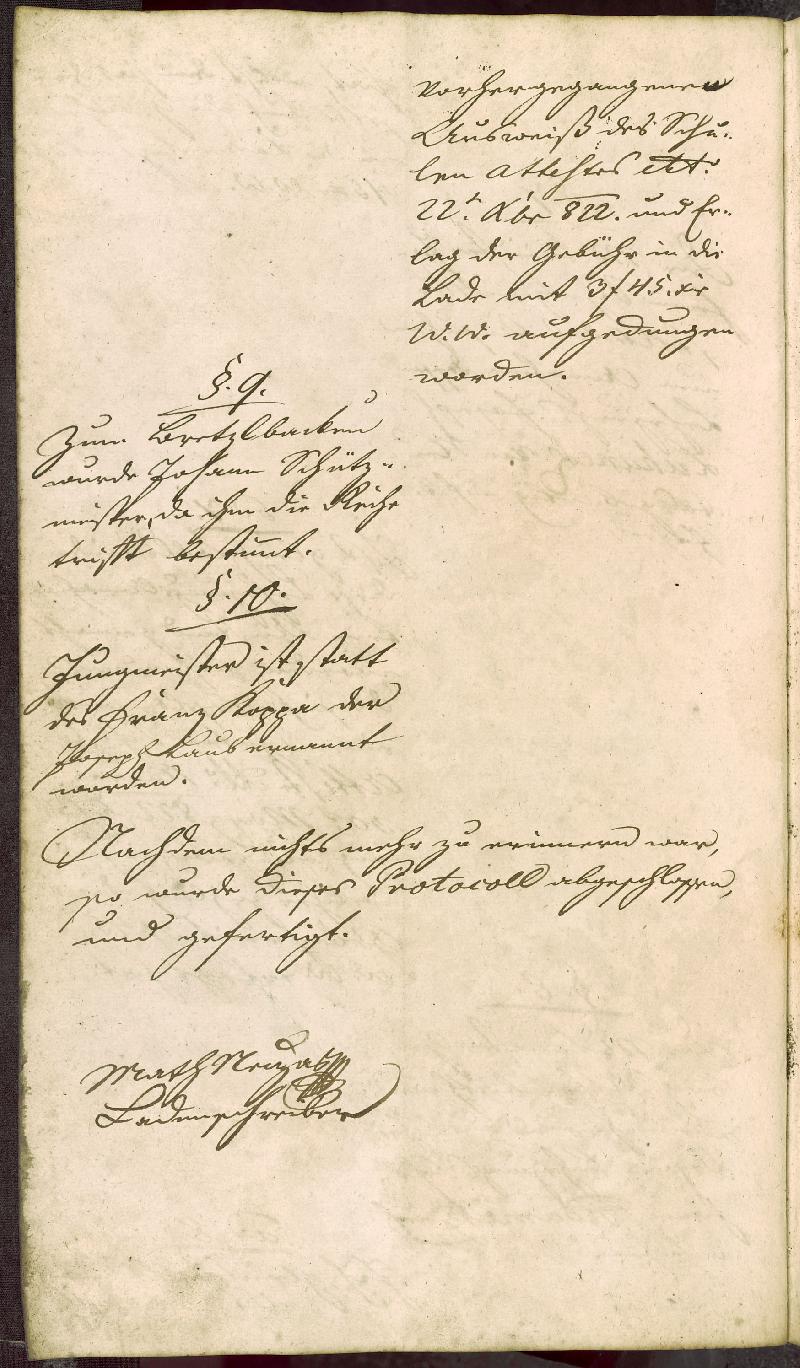 vorhergegangenen
Ausweiß des Schu-
len Attestes
22t. Xbr 822. und Er-
lag der Gebühr in die
Lade mit 3 f 45. xr
W. W. aufgedungen
worden.
§. 9.
Zum Bretzlbacken
wurde Johann Schütz-
meister, da ihm die Reihe
trifft bestimt.
§. 10.
Jungmeister ist statt
des Franz Koppa der
Joseph Laub ernannt
worden.
Nachdem nichts mehr zu erinnern war,
so wurde dieses Protocoll abgeschlossen,
und gefertigt.
Math
Ladenschreiber